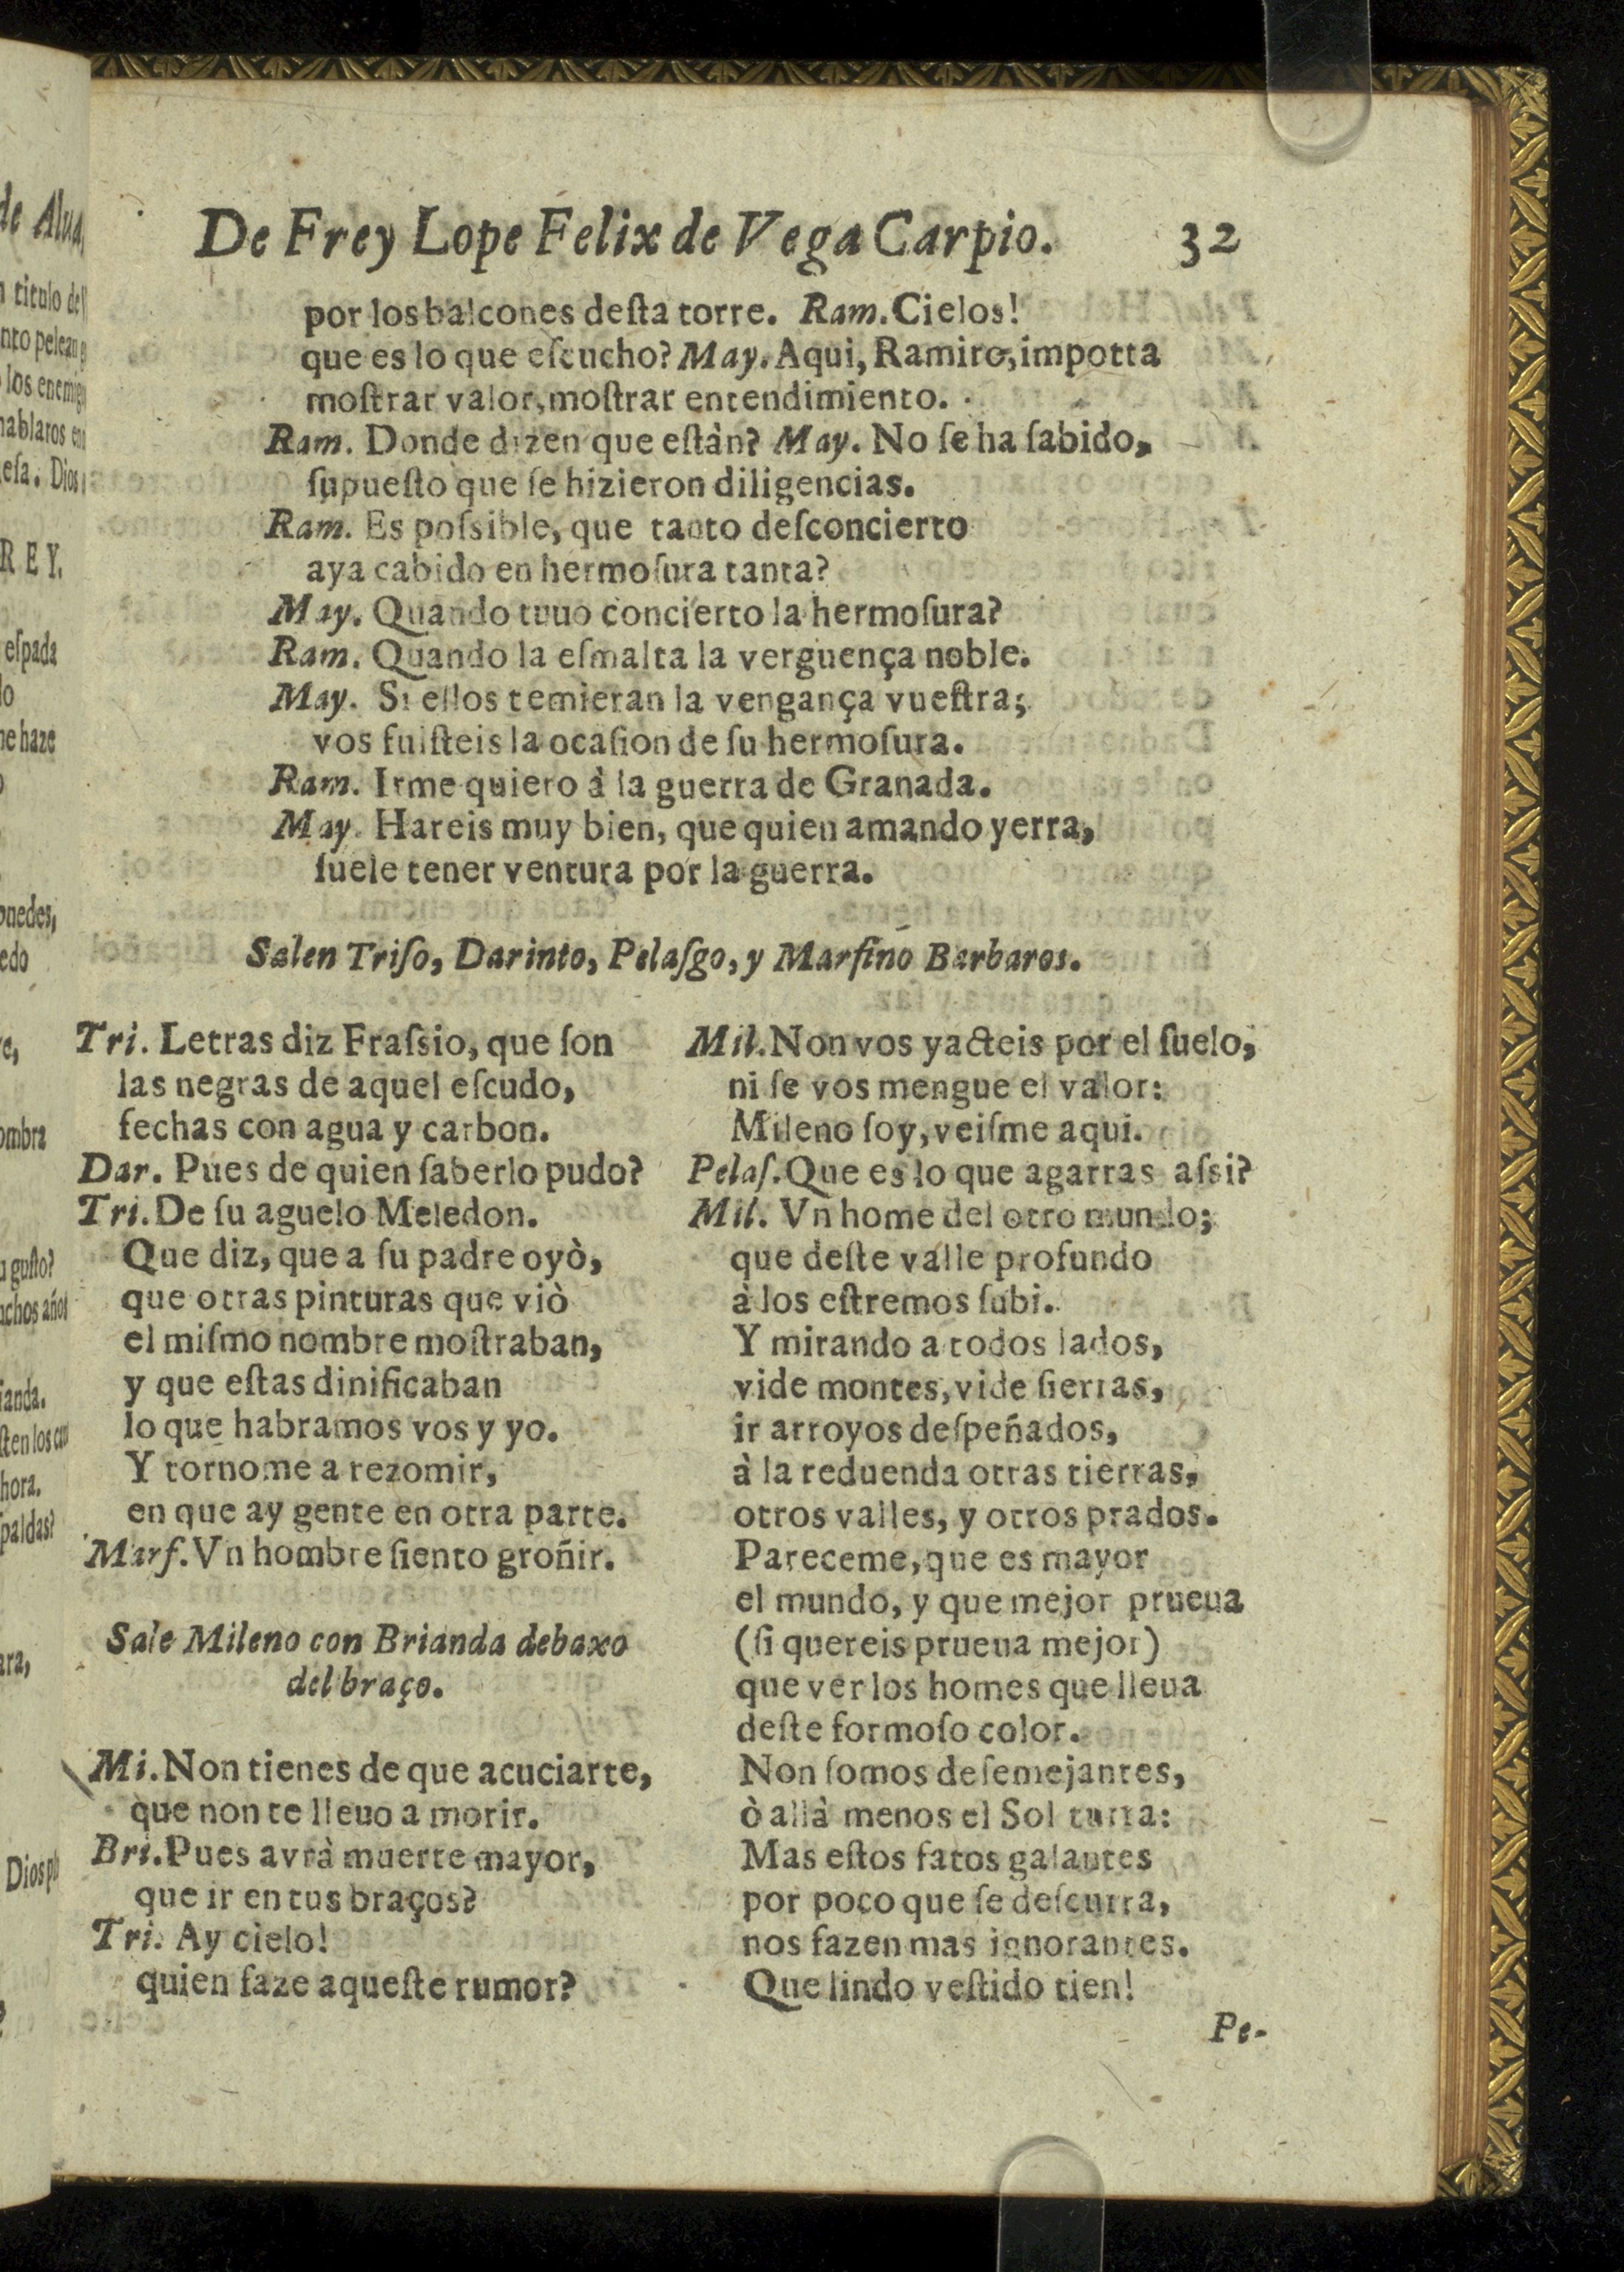 De Frey Lope Felix de Vega Carpio. 32
por los balcones deſta torre. Ram. Cielos!
que es lo que eſcucho? May. Aqui, Ramiro, impotta
moſtrar valor, moſtrar entendimiento.
Ram. Donde dizen que eſtàn? May. No ſe ha ſabido,
ſupueſto que ſe hizieron diligencias.
Ram. Es poſsible, que tanto deſconcierto
aya cabido en hermoſura tanta?
May. Quando tuuo concierto la hermoſura?
Ram. Quando la eſmalta la verguença noble.
May. Si ellos temieran la vengança vueſtra;
vos fuiſteis la ocaſion de ſu hermoſura.
Ram. Irme quiero à la guerra de Granada.
May. Hareis muy bien, que quien amando yerra,
ſuele tener ventura por la guerra.
Salen Triſo, Darinto, Pelaſgo, y Marfino Barbaros.
Tri. Letras diz Fraſsio, que ſon
las negras de aquel eſcudo,
fechas con agua y carbon.
Dar. Pues de quien ſaberlo pudo?
Tri. De ſu aguelo Meledon.
Que diz, que a ſu padre oyò,
que otras pinturas que viò
el miſmo nombre moſtraban,
y que eſtas dinificaban
lo que habramos vos y yo.
Y tornome a rezomir,
en que ay gente en otra parte.
Marf. Vn hombre ſiento groñir.
Sale Mileno con Brianda debaxo
del braço.
Mi. Non tienes de que acuciarte,
que non te lleuo a morir.
Bri. Pues avrà muerte mayor,
que ir en tus braços?
Tri. Ay cielo!
quien faze aqueſte rumor?
Mil. Non vos yacteis por el ſuelo,
ni ſe vos mengue el valor:
Mileno ſoy, veiſme aqui.
Pelaſ. Que es lo que agarras aſsi?
Mil. Vn home del otro mundo;
que deſte valle profundo
à los eſtremos ſubi.
Y mirando a todos lados,
vide montes, vide ſierras,
ir arroyos deſpeñados,
à la reduenda otras tierras,
otros valles, y otros prados.
Pareceme, que es mayor
el mundo, y que mejor prueua
(ſi quereis prueua mejor)
que ver los homes que lleua
deſte formoſo color.
Non ſomos deſemejantes,
ò allà menos el Sol turra:
Mas eſtos fatos galantes
por poco que ſe deſcurra,
nos fazen mas ignorantes.
Que lindo veſtido tien!
Pe-